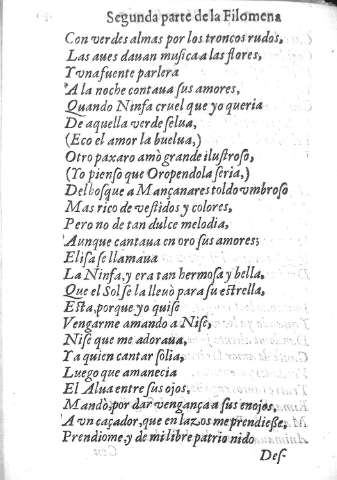 Segunda parte de la Filomena
Con verdes almas por los troncos rudos,
Las aues dauan musica a las flores,
Y vna fuente parlera
A la noche contaua sus amores,
Quando Ninfa cruel que yo queria
De aquella verde selua,
(Eco el amor la buelua,)
Otro paxaro amò grande ilustroso,
(Yo pienso que Oropendola seria,)
Del bosque a Mançanares toldo vmbroso
Mas rico de vestidos y colores,
Pero no de tan dulce melodia,
Aunque cantaua en oro sus amores;
Elisa se llamaua
La Ninfa, y era tan hermosa y bella,
Que el Sol se la lleuò para su estrella,
Esta, porque yo quise
Vengarme amando a Nise,
Nise que me adoraua,
Y a quien cantar solia,
Luego que amanecia
El Alua entre sus ojos,
Mandò, por dar vengança a sus enojos,
A vn caçador, que en lazos me prendiesse,
Prendiome, y de mi libre patrio nido
Des-